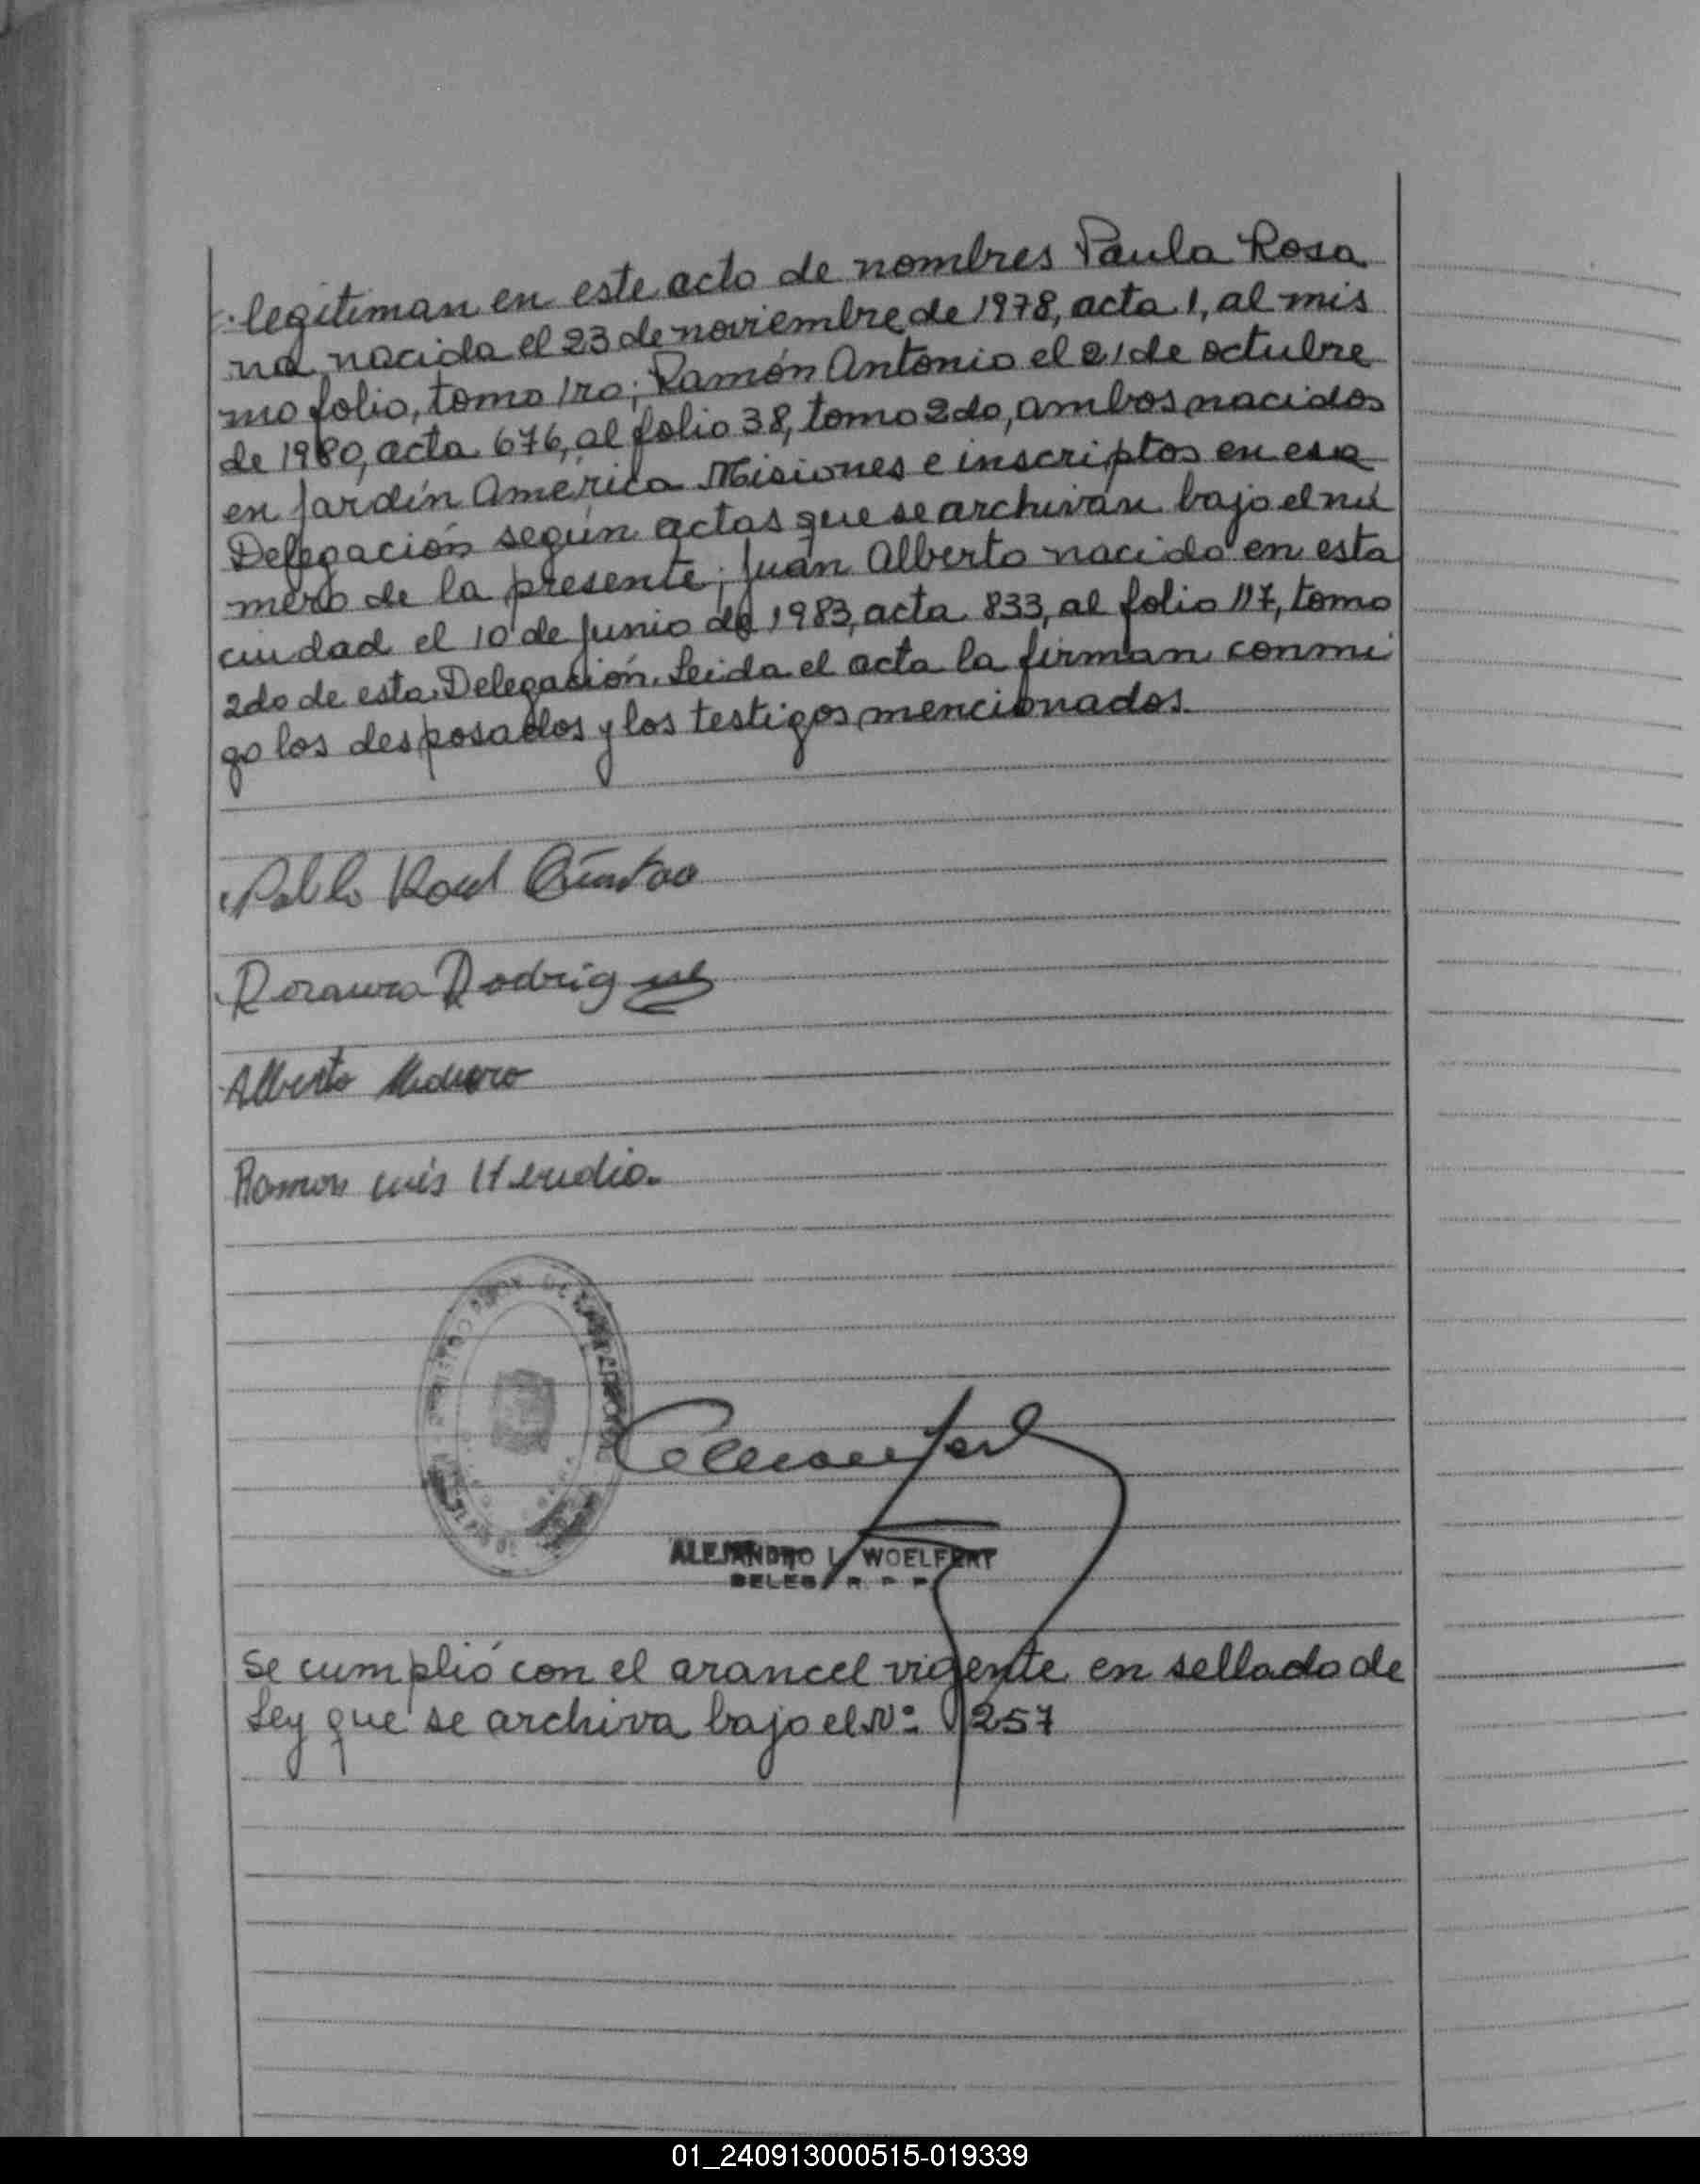 legitiman en este acto de nombres Paula Rosa
na nacida el 23 de noviembre de 1978, acta 1, al mis
mo folio, tomo 1ro; Ramón Antonio el 21 de octubre
de 1980, acta 676, al folio 38, tomo 2do, ambos nacidos
en Jardín América Misiones e inscriptos en esa
Delegación según actas que se archivan bajo el nú
mero de la presente; Juan Alberto nacido en esta
ciudad el 10 de Junio de 1983, acta 833, al folio 117, tomo
2do de esta Delegación. Leida el acta la firman conmi
go los desposados y los testigos mencionados
Pablo Raul
Rosaura Rodriguez
Alberto
Ramon Luis Heredia.
ALEJANDRO L. WOELFERT
DELEG R P P
Se cumplió con el arancel vigente en sellado de
Ley que se archiva bajo el Nº 257
01_240913000515-019339